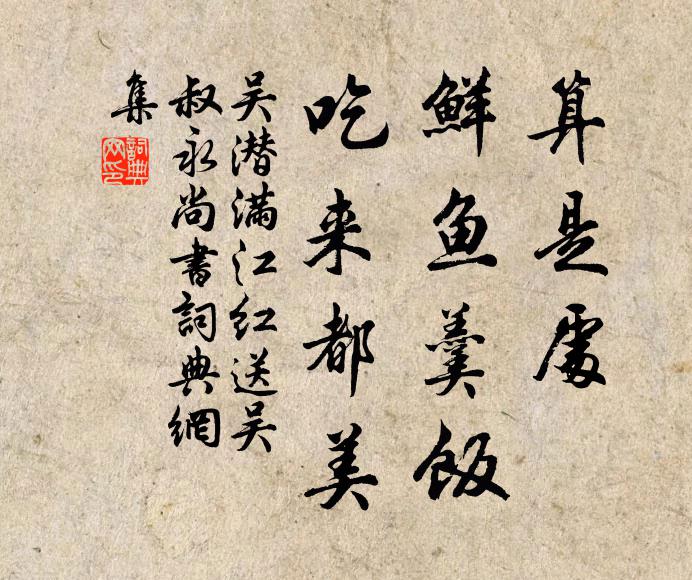 算是處
鮮鱼羹飯
吃来都美
吴潜满江红送吴
叔永尚書詞典網
集
詞典
网印